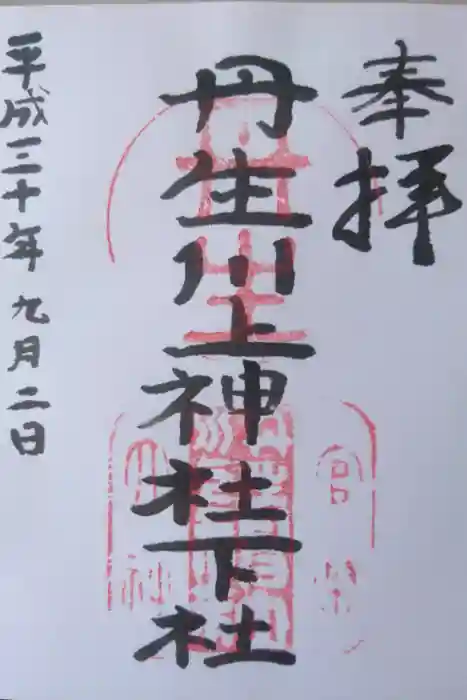 奉拝
丹生川上神社下社
平成三十年九月二日